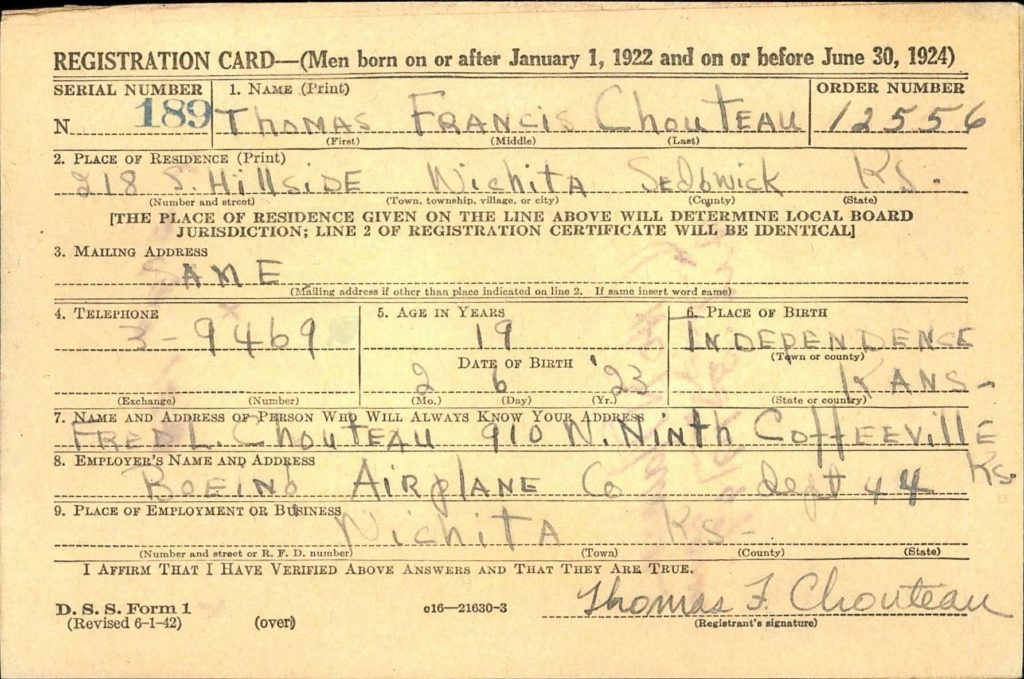 REGISTRATION CARD—(Men born on or after January 1, 1922 and on or before June 30, 1924)
SERIAL NUMBER 1. NAME (Print) ORDER NUMBER
N 189 THOMAS FRANCIS CHOUTEAU 12556
(First) (Middle) (Last)
2. PLACE OF RESIDENCE (Print)
218 S. HILLSIDE WICHITA SEDGWICK KS.
(Number and street) (Town, township, village, or city) (County) (State)
[THE PLACE OF RESIDENCE GIVEN ON THE LINE ABOVE WILL DETERMINE LOCAL BOARD
JURISDICTION; LINE 2 OF REGISTRATION CERTIFICATE WILL BE IDENTICAL]
3. MAILING ADDRESS
SAME
(Mailing address if other than place indicated on line 2. If same insert word same)
4. TELEPHONE 5. AGE IN YEARS 6. PLACE OF BIRTH
3-9469 19 INDEPENDENCE
(Town or county)
DATE OF BIRTH
2 6 '23 KANS-
(Exchange) (Number) (Mo.) (Day) (Yr.) (State or country)
7. NAME AND ADDRESS OF PERSON WHO WILL ALWAYS KNOW YOUR ADDRESS
FRED L. CHOUTEAU 910 N. NINTH COFFEEVILLE
KS.
8. EMPLOYER'S NAME AND ADDRESS
BOEING AIRPLANE CO dept 44
9. PLACE OF EMPLOYMENT OR BUSINESS
WICHITA KS-
(Number and street or R. F. D. number) (Town) (County) (State)
I AFFIRM THAT I HAVE VERIFIED ABOVE ANSWERS AND THAT THEY ARE TRUE.
D. S. S. Form 1 c16—21630-3 Thomas F. Chouteau
(Revised 6-1-42) (over) (Registrant's signature)